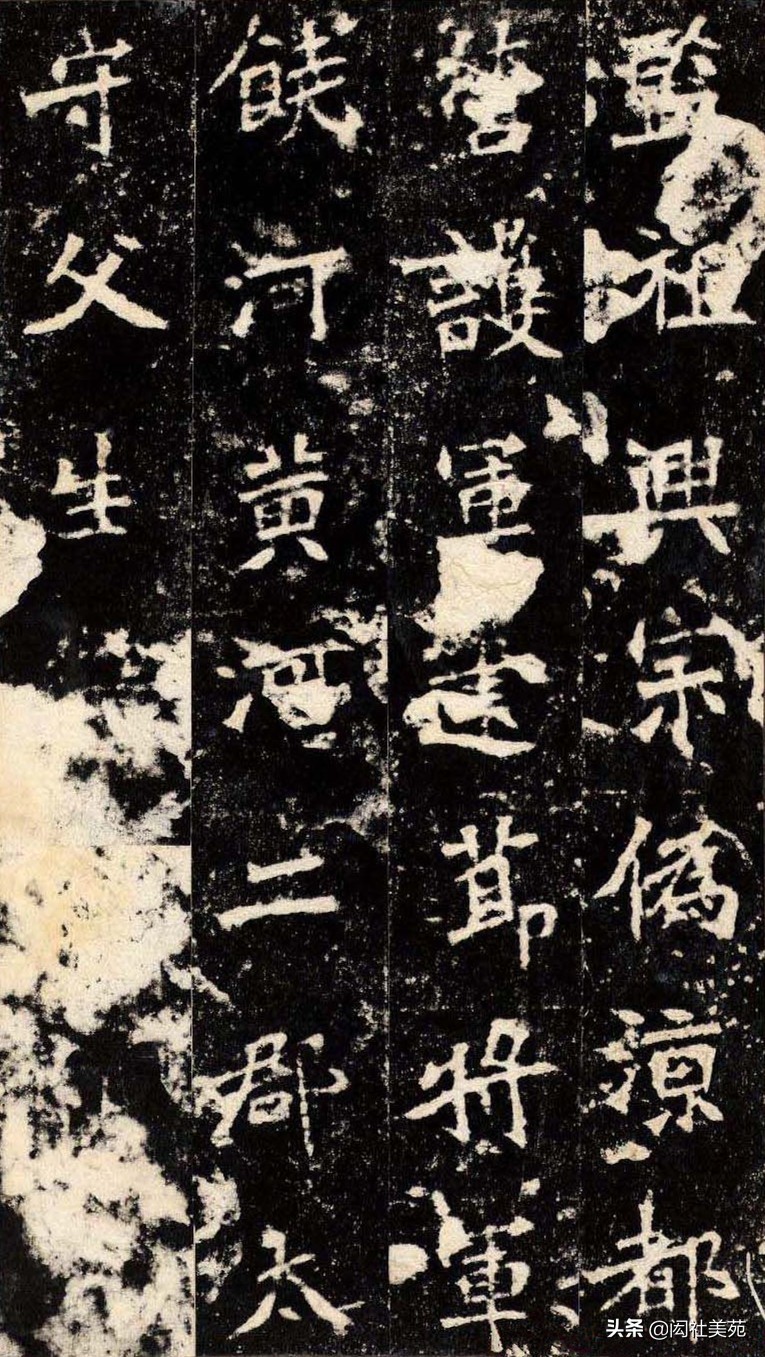 監祖興宗偽涼都
營護軍建節將軍
饒河黃河二郡太
守父生
头条 @闳社美苑